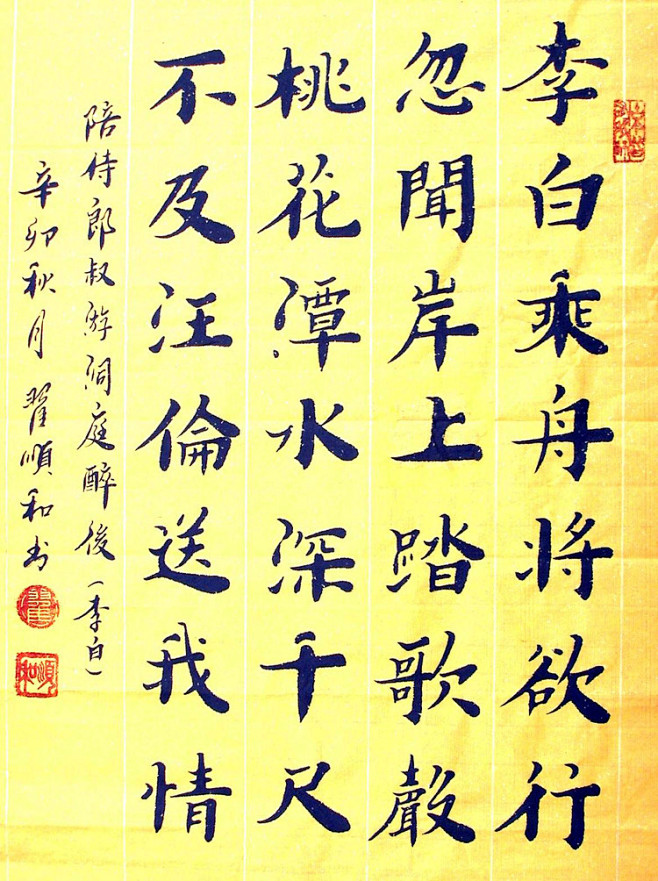 李白乘舟將欲行
忽聞岸上踏歌聲
桃花潭水深千尺
不及汪倫送我情
陪侍郎叔游洞庭醉後(李白)
辛卯秋月翟順和书
翟
順和